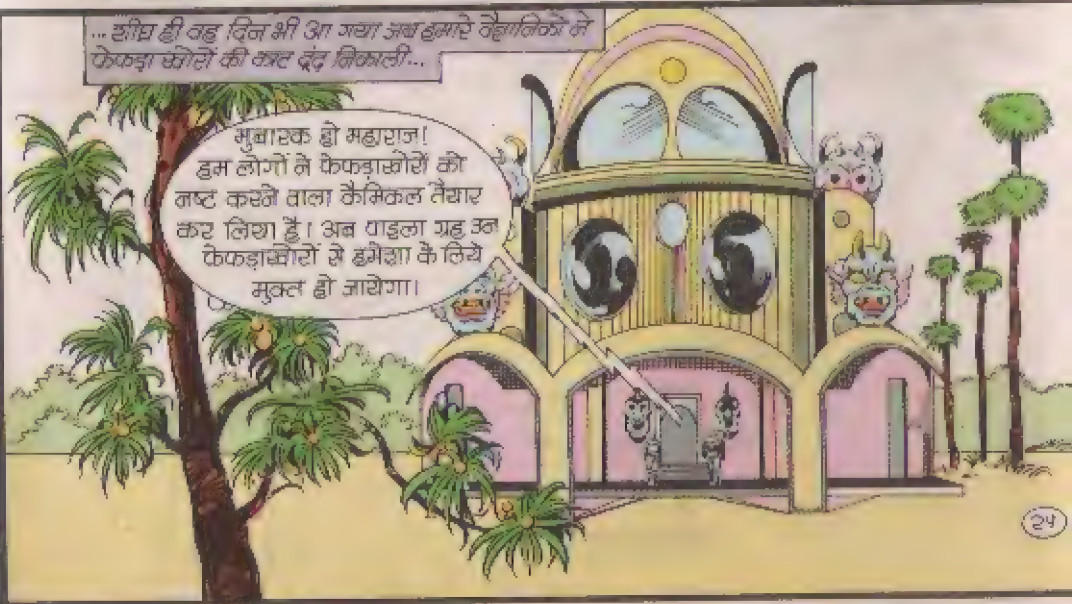 ... शीघ्र ही वह दिन भी आ गया जब हमारे वैज्ञानिकों ने
फेफड़ा खोरों की काट ढूंढ निकाली...
मुबारक हो महाराज!
हम लोगों ने फेफड़ाखोरों को
नष्ट करने वाला कैमिकल तैयार
कर लिया है। अब पाइला ग्रह उन
फेफड़ाखोरों से हमेशा के लिये
मुक्त हो जायेगा।
24